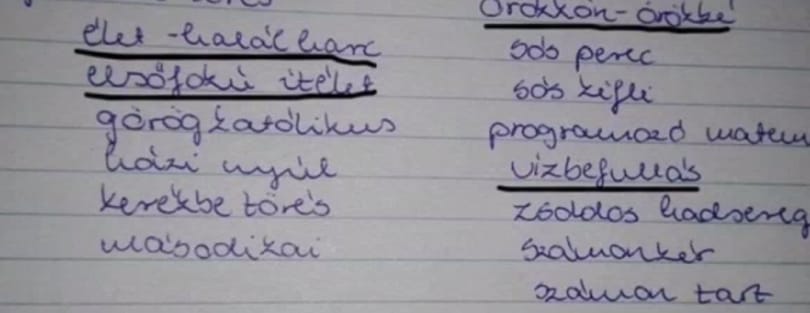 élet-halál harc
elsőfokú ítélet
görögkatolikus
házi nyúl
kerékbe törés
másodikai
örökkön-örökké
sós perec
sós kifli
programozó matem
vízbefúllás
zsoldos hadsereg
számonkér
számon tart